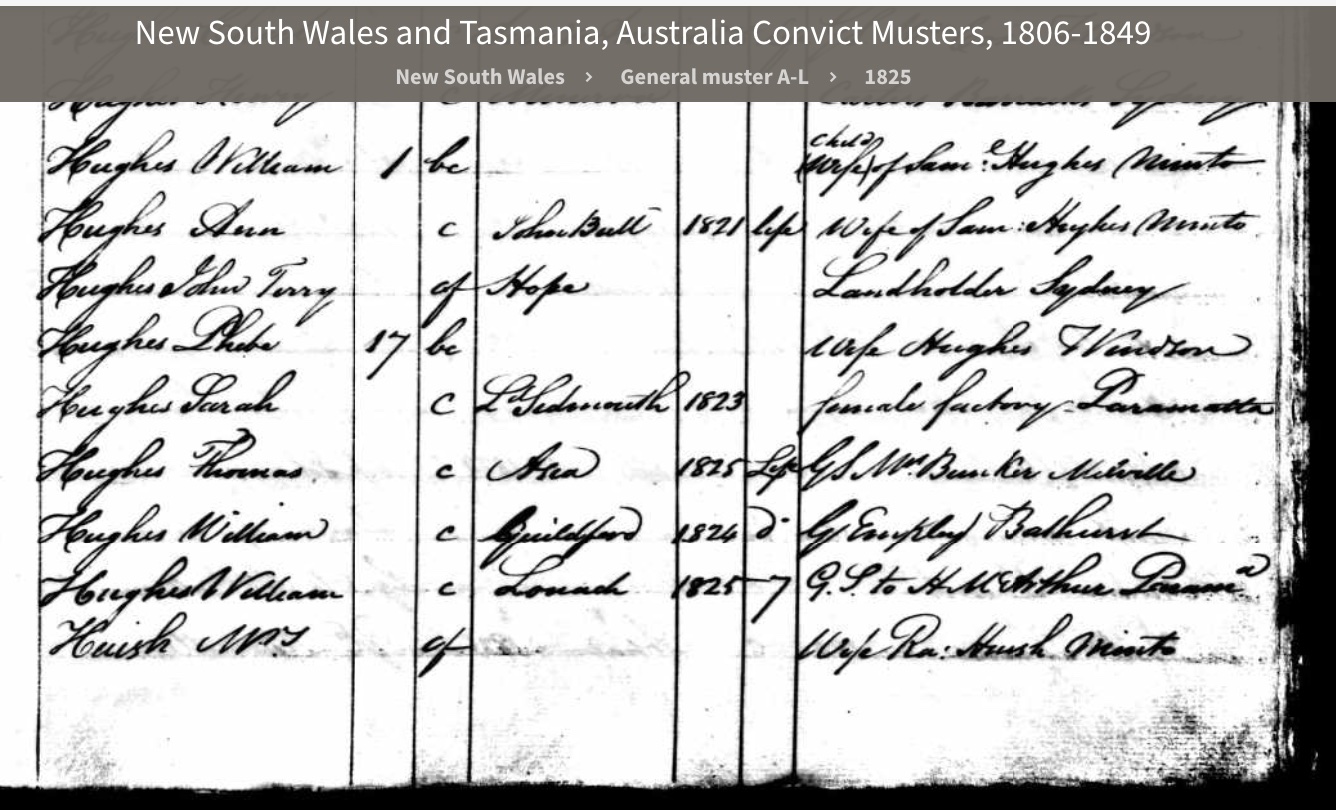 New South Wales and Tasmania, Australia Convict Musters, 1806-1849
New South Wales › General muster A-L › 1825
Hughes Henry c Barracks Sydney
child
Hughes William 1 bc (Wife) of Saml Hughes Minto
Hughes Ann c John Bull 1821 life Wife of Sam: Hughes Minto
Hughes John Terry cf Hope Landholder Sydney
Hughes Phebe 17 bc Wife Hughes Windsor
Hughes Sarah c Ld Sidmouth 1823 female factory Paramatta
Hughes Thomas c Asia 1825 Life G S Mr Bunker Melville
Hughes William c Guildford 1824 do G. Employ Bathurst
Hughes William c Lonach 1825 7 G. S. to H McArthur Parama
Huish Mrs cf Wife Ra: Huish Minto